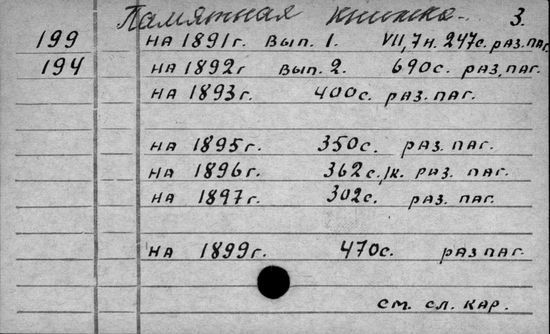 Памятная книжка. 3.
199 на 1891г. вып. 1. VII, 7н. 247с. раз.паг.
194 на 1892г вып. 2. 690с. раз.паг.
на 1893г. 400с. раз.паг.
на 1895г. 350с. раз.паг.
на 1896г. 362с./к. раз.паг.
на 1897г. 302с. раз.паг.
на 1899г. 470с. раз паг.
см. сл. кар.